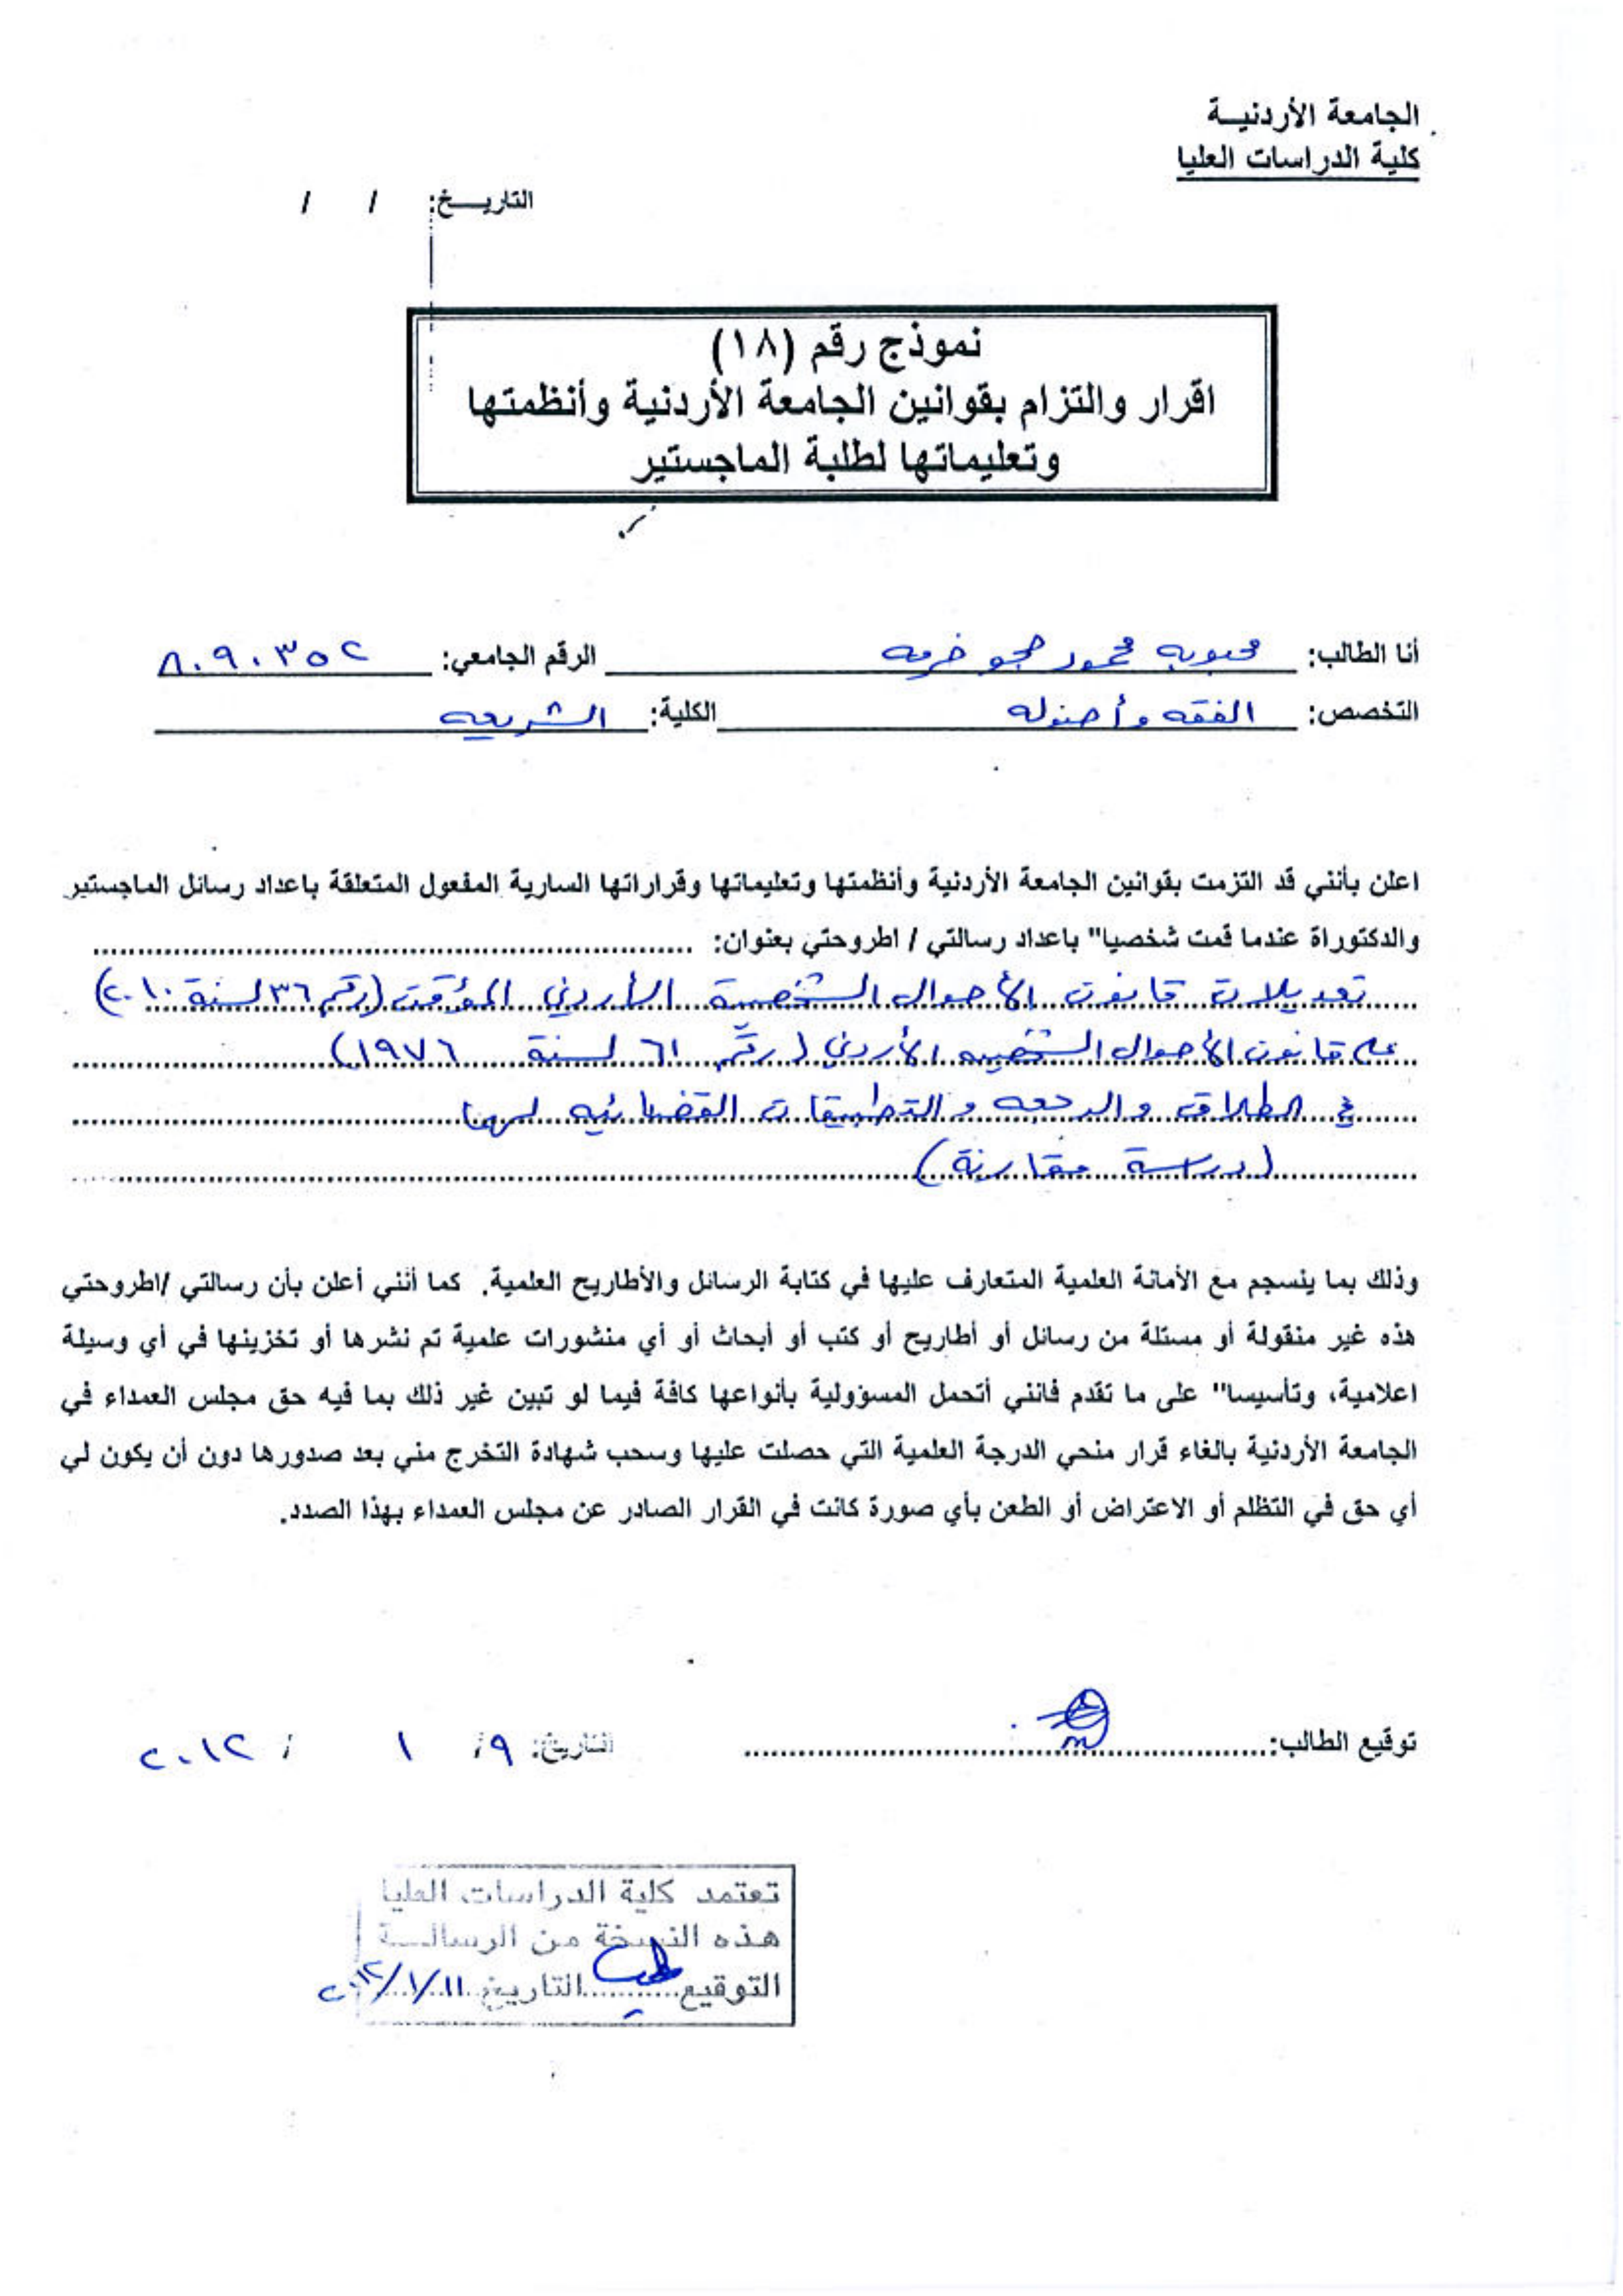 الجامعة الأردنيـة
كلية الدراسات العليا
التاريـخ: / /
نموذج رقم (١٨)
اقرار والتزام بقوانين الجامعة الأردنية وأنظمتها
وتعليماتها لطلبة الماجستير
أنا الطالب: محبوبه محمود الرقم الجامعي: ٨٠٩٠٣٥٢
التخصص: الفقه وأصوله الكلية: الشريعه
اعلن بأنني قد التزمت بقوانين الجامعة الأردنية وأنظمتها وتعليماتها وقراراتها السارية المفعول المتعلقة باعداد رسائل الماجستير
والدكتوراة عندما قمت شخصيا" باعداد رسالتي / اطروحتي بعنوان:
تعديلات قانون الأحوال الشخصية الأردني المؤقت (رقم ٣٦ لسنة ٢٠١٠)
على قانون الأحوال الشخصيه الأردني (رقم ٦١ لسنة ١٩٧٦)
في الطلاق والرجعه والتطبيقات القضائيه لهما
(دراسة مقارنة)
وذلك بما ينسجم مع الأمانة العلمية المتعارف عليها في كتابة الرسائل والأطاريح العلمية. كما أنني أعلن بأن رسالتي /اطروحتي
هذه غير منقولة أو مستلة من رسائل أو أطاريح أو كتب أو أبحاث أو أي منشورات علمية تم نشرها أو تخزينها في أي وسيلة
اعلامية، وتأسيسا" على ما تقدم فانني أتحمل المسؤولية بأنواعها كافة فيما لو تبين غير ذلك بما فيه حق مجلس العمداء في
الجامعة الأردنية بالغاء قرار منحي الدرجة العلمية التي حصلت عليها وسحب شهادة التخرج مني بعد صدورها دون أن يكون لي
أي حق في التظلم أو الاعتراض أو الطعن بأي صورة كانت في القرار الصادر عن مجلس العمداء بهذا الصدد.
توقيع الطالب: التاريخ: ٩ / ١ / ٢٠١٢
تعتمد كلية الدراسات العليا
هذه النسخة من الرسالـة
التوقيع التاريخ ١١/١/٢٠١٢